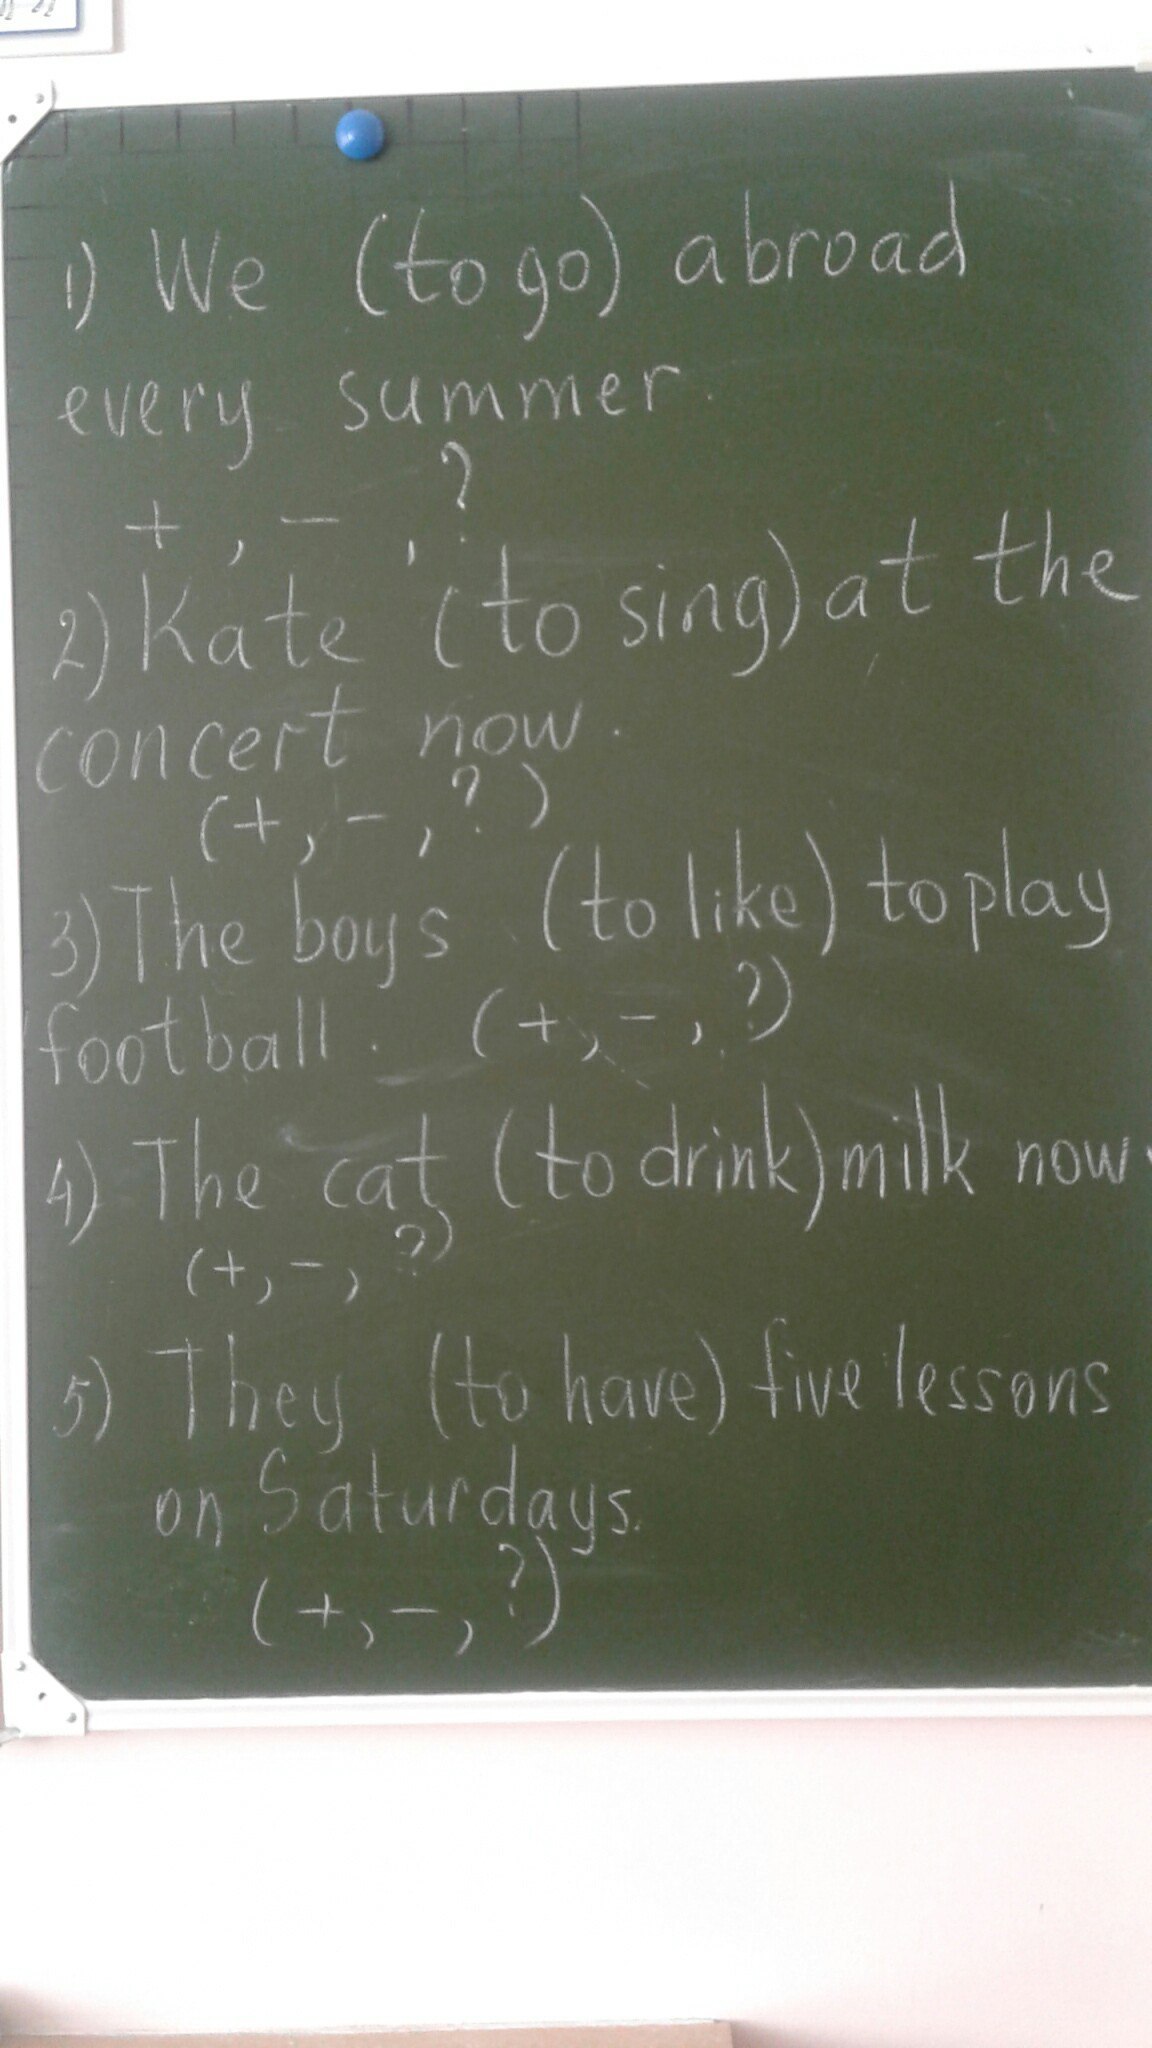 1) We (to go) abroad
every summer.
+ , - , ?
2) Kate (to sing) at the
concert now.
(+, -, ?)
3) The boys (to like) to play
football. (+, -, ?)
4) The cat (to drink) milk now.
(+, -, ?)
5) They (to have) five lessons
on Saturdays.
(+, -, ?)